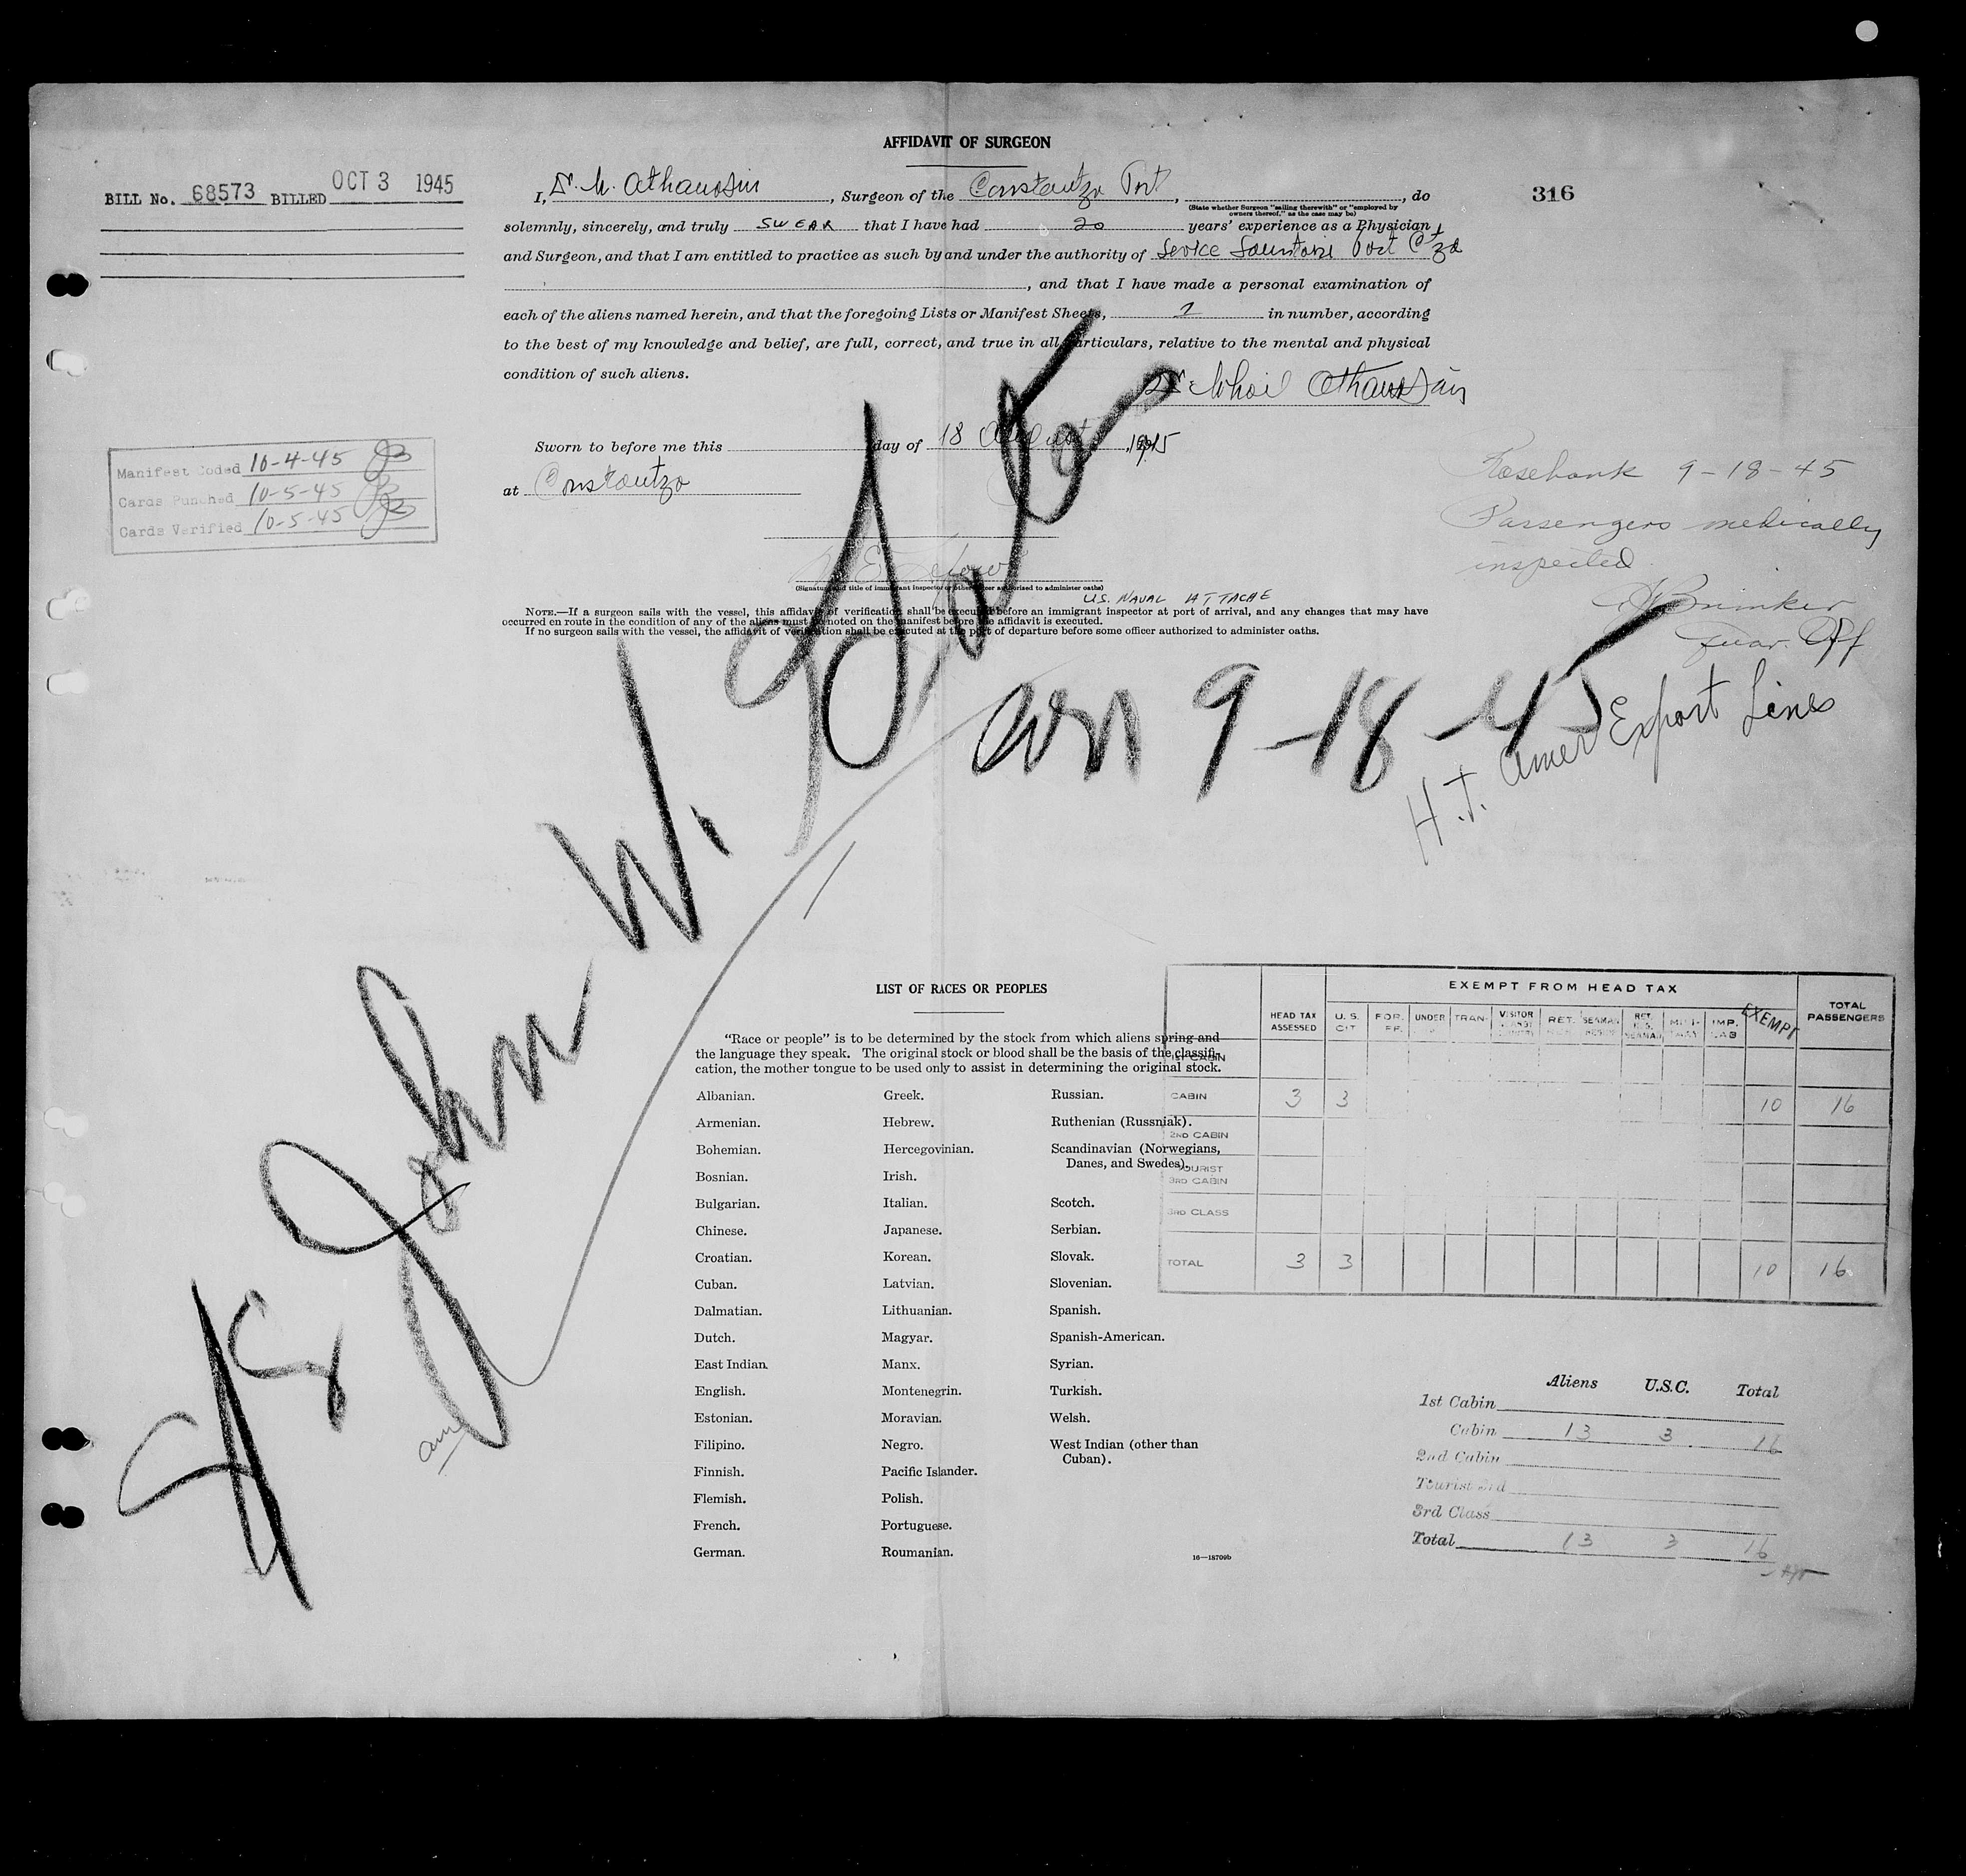 AFFIDAVIT OF SURGEON
316
BILL No. 68573 BILLED OCT 3 1945
I, Dr. M. Athanasiu, Surgeon of the Constantza Port, , do
(State whether Surgeon "sailing therewith" or "employed by
owners thereof," as the case may be)
solemnly, sincerely, and truly SWEAR that I have had 20 years' experience as a Physician
and Surgeon, and that I am entitled to practice as such by and under the authority of Port
, and that I have made a personal examination of
each of the aliens named herein, and that the foregoing Lists or Manifest Sheets, in number, according
to the best of my knowledge and belief, are full, correct, and true in all particulars, relative to the mental and physical
condition of such aliens.
Dr. Athanasiu
Sworn to before me this day of 18 August, 1945
at Constantza
(Signature and title of immigrant inspector or other officer authorized to administer oaths)
U.S. NAVAL ATTACHE
NOTE.—If a surgeon sails with the vessel, this affidavit of verification shall be executed before an immigrant inspector at port of arrival, and any changes that may have
occurred en route in the condition of any of the aliens must be noted on the manifest before the affidavit is executed.
If no surgeon sails with the vessel, the affidavit of verification shall be executed at the port of departure before some officer authorized to administer oaths.
Manifest Coded 10-4-45 JB
Cards Punched 10-5-45 JB
Cards Verified 10-5-45 JB
Rosebank 9-18-45
Passengers medically
inspected
Quar. Off
SS John W.
arr 9-18-45
H.T. Amer Export Lines
LIST OF RACES OR PEOPLES
"Race or people" is to be determined by the stock from which aliens spring and
the language they speak. The original stock or blood shall be the basis of the classifi-
cation, the mother tongue to be used only to assist in determining the original stock.
Albanian.
Armenian.
Bohemian.
Bosnian.
Bulgarian.
Chinese.
Croatian.
Cuban.
Dalmatian.
Dutch.
East Indian.
English.
Estonian.
Filipino.
Finnish.
Flemish.
French.
German.
Greek.
Hebrew.
Hercegovinian.
Irish.
Italian.
Japanese.
Korean.
Latvian.
Lithuanian.
Magyar.
Manx.
Montenegrin.
Moravian.
Negro.
Pacific Islander.
Polish.
Portuguese.
Roumanian.
Russian.
Ruthenian (Russniak).
Scandinavian (Norwegians,
Danes, and Swedes).
Scotch.
Serbian.
Slovak.
Slovenian.
Spanish.
Spanish-American.
Syrian.
Turkish.
Welsh.
West Indian (other than
Cuban).
16—18709b
EXEMPT FROM HEAD TAX
HEAD TAX ASSESSED U.S. CIT. FOR. UNDER TRAN. VISITOR RET. SEAMAN RET. IMP. EXEMPT TOTAL PASSENGERS
1ST CABIN
CABIN 3 3 10 16
2ND CABIN
TOURIST
3RD CABIN
3RD CLASS
TOTAL 3 3 10 16
Aliens U.S.C. Total
1st Cabin
Cabin 13 3 16
2nd Cabin
Tourist 3rd
3rd Class
Total 13 3 16